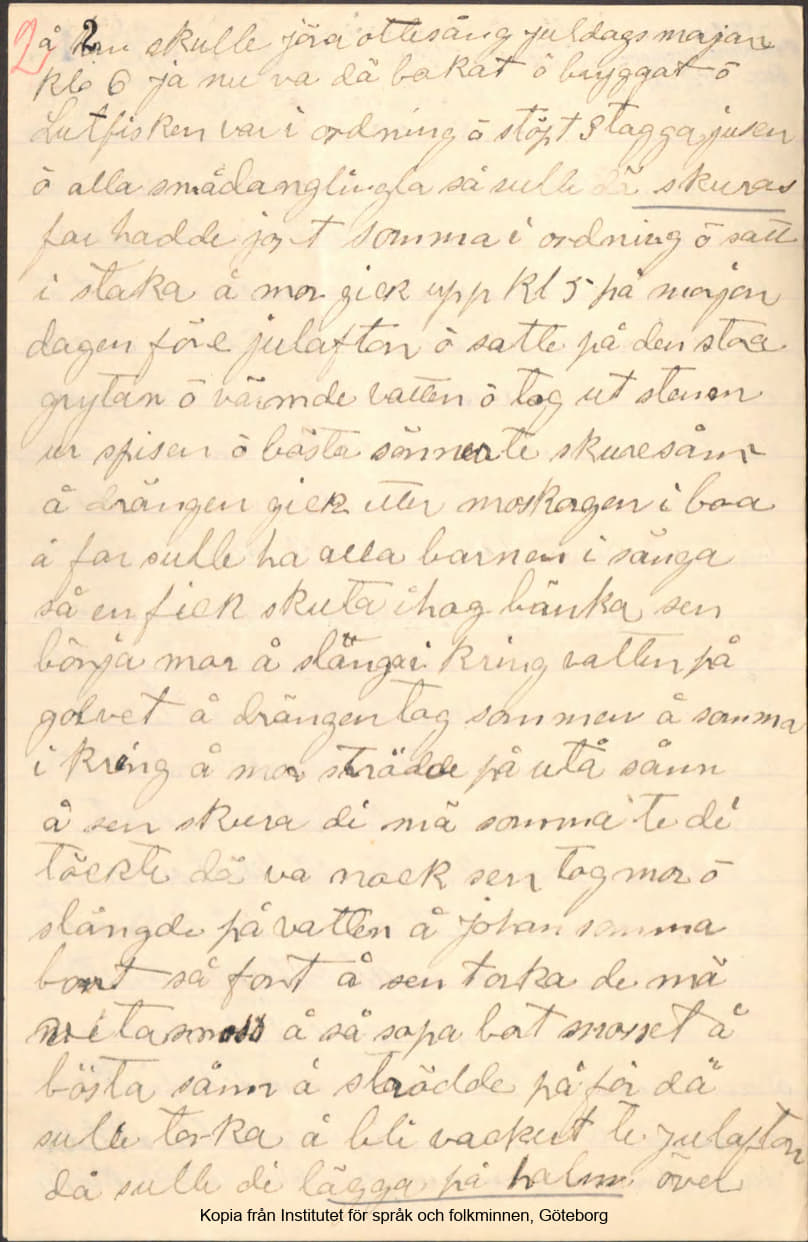 2) 2
å hn skulle jöra ottesång juldagsmarjan
kl 6 ja nu va dä bakat ö bryggat ö
Lutfisken var i ordning ö stöpt 3 tagga jusen
ö alla smådanglingla så sulle dä skuras
far hadde jort somma i ordning ö satt
i staka å mor gick upp kl 5 på morjon
dagen före julafton ö satte på den stora
grytan ö värmde vatten ö tog ut stenen
ur spisen ö bösta sönner te skuresånn
å drängen gick etter moskorgen i boa
å far sulle ha alla barnen i sänga
så en fick skuta ihog bänka sen
börja mor å slänga i kring vatten på
golvet å drängen tog sommen å somma
i kring å mor strödde på utå sånn
å sen skura di mä somma te di
töckte dä va nock sen tog mor ö
slängde på vatten å johan somma
bort så fort å sen torka de mä
vitamoss å så sopa bort mosset å
bösta sånn å strödde på för dä
sulle torka å bli vackert te julafton
då sulle di lägga på halm över
Kopia från Institutet för språk och folkminnen, Göteborg